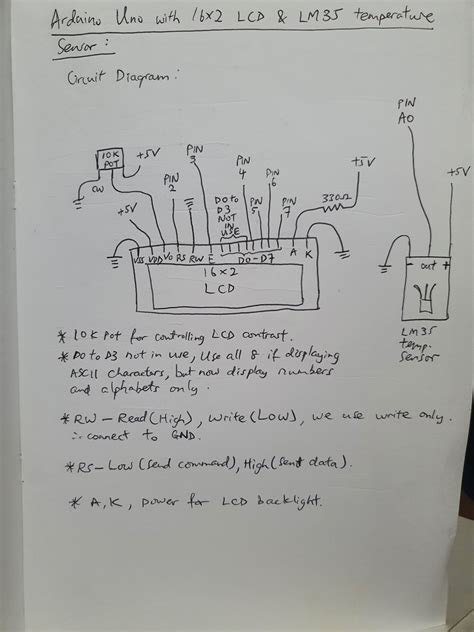 Arduino Uno with 16x2 LCD & LM35 temperature
Sensor:
Circuit Diagram:
PIN
A0
10K
POT
+5V
CW
PIN
2
PIN
3
PIN
4
PIN
6
+5V
+5V
330Ω
D0 to
D3
NOT
IN
USE
PIN
5
PIN
7
+5V
VSS VDD VO RS RW E D0-D7 A K
16x2
LCD
- out +
LM35
temp.
sensor
* 10K Pot for controlling LCD contrast.
* D0 to D3 not in use, Use all 8 if displaying
ASCII characters, but now display numbers
and alphabets only.
* RW - Read(High), write(LOW), we use write only.
∴ connect to GND.
* RS - Low (Send command), High (sent data).
* A, K, power for LCD backlight.